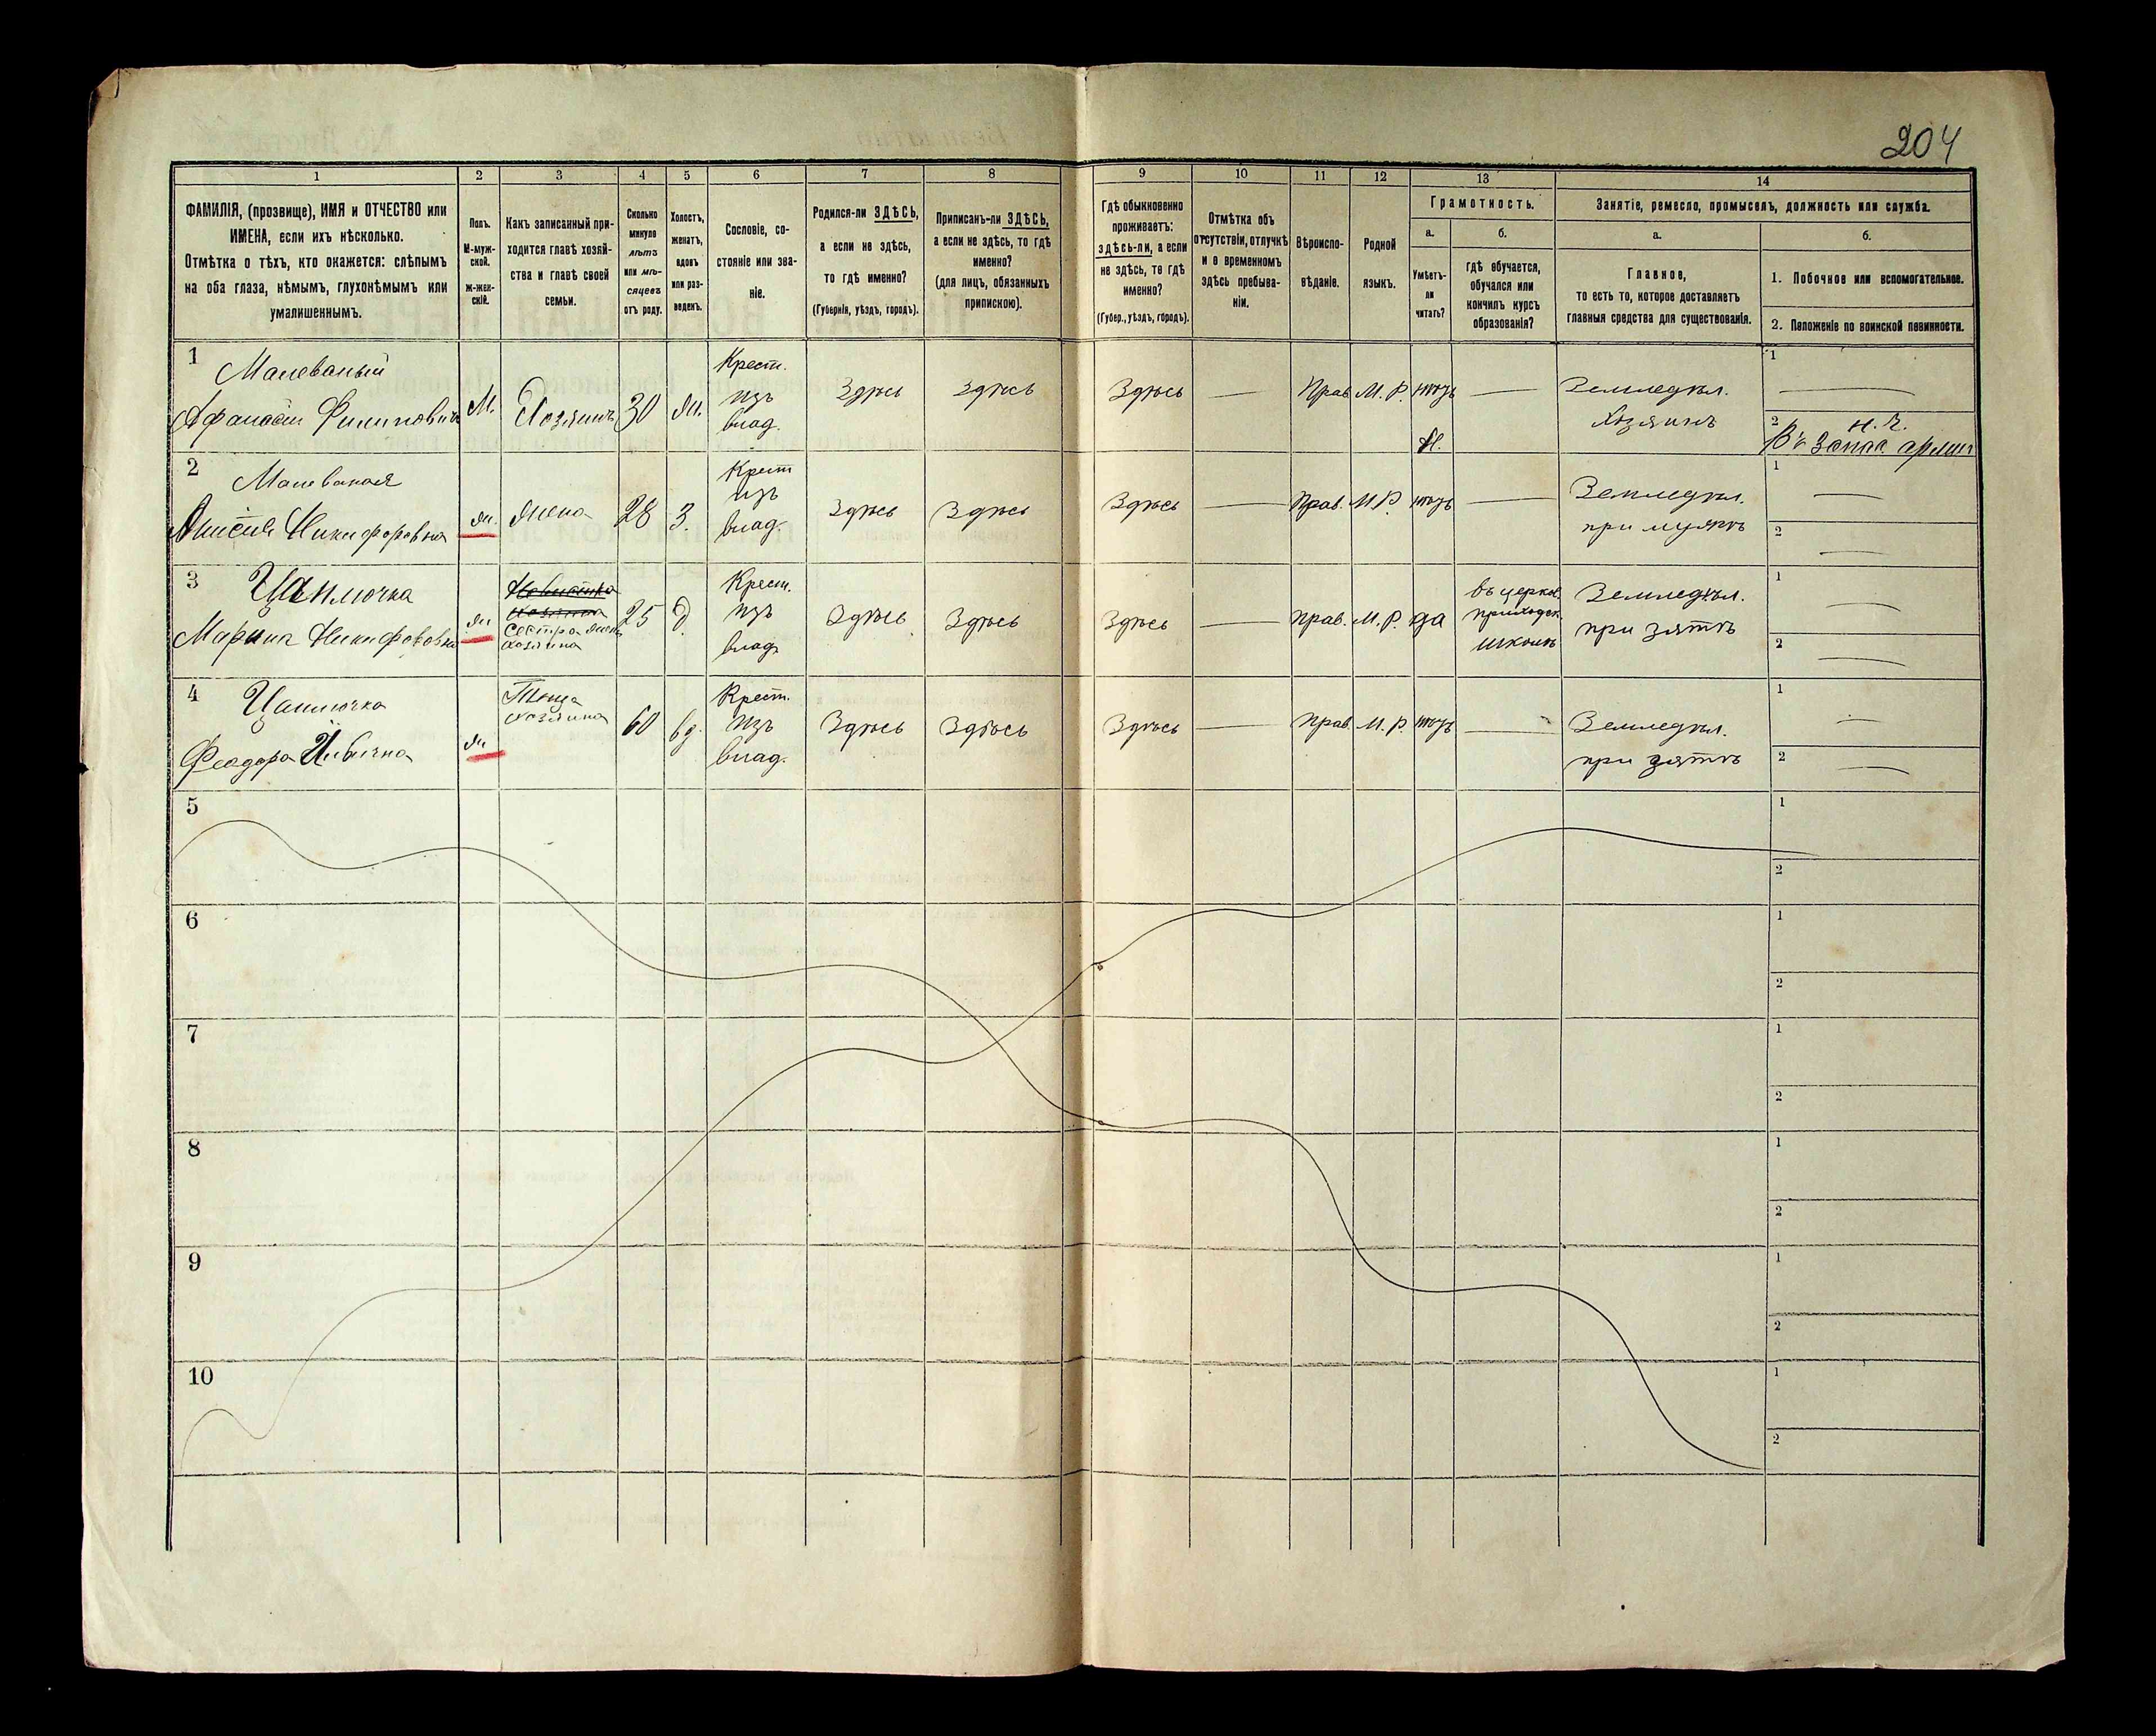 204
1
2
3
4
5
6
7
8
9
10
11
12
13
14
ФАМИЛІЯ, (прозвище), ИМЯ и ОТЧЕСТВО или
ИМЕНА, если ихъ нѣсколько.
Отмѣтка о тѣхъ, кто окажется: слѣпымъ
на оба глаза, нѣмымъ, глухонѣмымъ или
умалишеннымъ.
Полъ.
М-муж-
ской.
Ж-жен-
скій.
Какъ записанный при-
ходится главѣ хозяй-
ства и главѣ своей
семьи.
Сколько
минуло
лѣтъ
или мѣ-
сяцевъ
отъ роду.
Холостъ,
женатъ,
вдовъ
или раз-
веденъ.
Сословіе, со-
стояніе или зва-
ніе.
Родился-ли ЗДѢСЬ,
а если не здѣсь,
то гдѣ именно?
(Губернія, уѣздъ, городъ).
Приписанъ-ли ЗДѢСЬ,
а если не здѣсь, то гдѣ
именно?
(для лицъ, обязанныхъ
припискою).
Гдѣ обыкновенно
проживаетъ:
здѣсь-ли, а если
не здѣсь, то гдѣ
именно?
(Губер., уѣздъ, городъ).
Отмѣтка объ
отсутствіи, отлучкѣ
и о временномъ
здѣсь пребыва-
ніи.
Вѣроиспо-
вѣданіе.
Родной
языкъ.
Грамотность.
а.
Умѣетъ-
ли
читать?
б.
гдѣ обучается,
обучался или
кончилъ курсъ
образованія?
Занятіе, ремесло, промыселъ, должность или служба.
а.
Главное,
то есть то, которое доставляетъ
главныя средства для существованія.
б.
1. Побочное или вспомогательное.
2. Положеніе по воинской повинности.
1
Малеваный
Афанасій Филиповичъ
М.
Хозяинъ
30
Ж.
Крест.
изъ
влад.
Здѣсь
Здѣсь
Здѣсь
—
Прав.
М. Р.
нѣтъ
Н.
—
Земледѣл.
Хозяинъ
1
—
2
Н. Ч.
Въ запас. арміи
2
Малеваная
Анисія Никифоровна
Ж.
Жена
28
З.
Крест
изъ
влад.
Здѣсь
Здѣсь
Здѣсь
—
Прав.
М. Р.
нѣтъ
—
Земледѣл.
при мужѣ
1
—
2
—
3
Цаплючка
Марина Никифоровна
Ж
Сестра жены
хозяина
25
Д
Крест.
изъ
влад
Здѣсь
Здѣсь
Здѣсь
—
Прав.
М. Р.
да
въ церков.
приходск.
школѣ
Земледѣл.
при зятѣ
1
—
2
—
4
Цаплючка
Феодора
Ж.
Теща
хозяина
60
вд.
Крест.
изъ
влад.
Здѣсь
Здѣсь
Здѣсь
—
Прав.
М. Р.
нѣтъ
—
Земледѣл.
при зятѣ
1
—
2
—
5
1
2
6
1
2
7
1
2
8
1
2
9
1
2
10
1
2